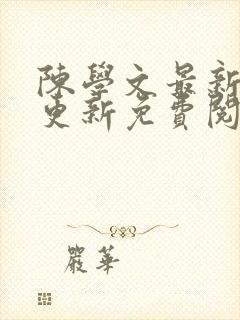 陳學文最新
更新免費閱
嚴華